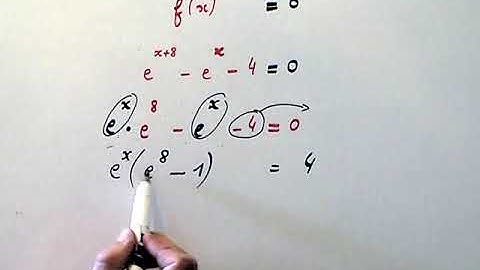 f(x) = 0
e^{x+8} - e^x - 4 = 0
e^x · e^8 - e^x - 4 = 0
e^x (e^8 - 1) = 4